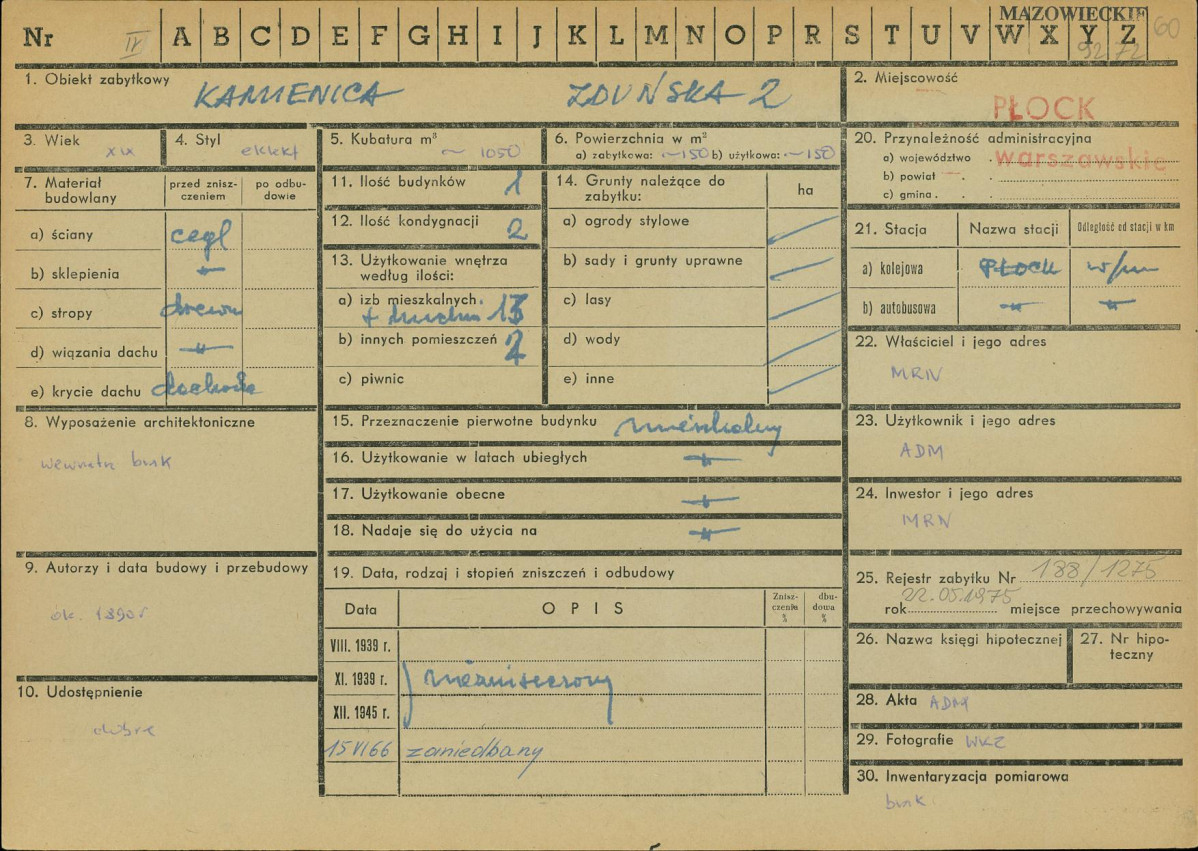 MAZOWIECKIE
Nr IV A B C D E F G H I J K L M N O P R S T U V W X Y Z 60
92/72
1. Obiekt zabytkowy
KAMIENICA ZDUŃSKA 2
2. Miejscowość
PŁOCK
3. Wiek
XIX
4. Styl
eklekt
5. Kubatura m³
~ 1050
6. Powierzchnia w m²
a) zabytkowa: ~150 b) użytkowa: ~150
20. Przynależność administracyjna
a) województwo warszawskie
b) powiat
c) gmina
7. Materiał budowlany
przed zniszczeniem
po odbudowie
a) ściany cegl
b) sklepienia -"-
c) stropy drewn
d) wiązania dachu -"-
e) krycie dachu dachówka
11. Ilość budynków 1
12. Ilość kondygnacji 2
13. Użytkowanie wnętrza
według ilości:
a) izb mieszkalnych
+ kuchni 13
b) innych pomieszczeń 2
c) piwnic
14. Grunty należące do
zabytku:
ha
a) ogrody stylowe
b) sady i grunty uprawne
c) lasy
d) wody
e) inne
21. Stacja
Nazwa stacji
Odległość od stacji w km
a) kolejowa PŁOCK w/m
b) autobusowa -"- -"-
22. Właściciel i jego adres
MRN
8. Wyposażenie architektoniczne
wewnątrz brak
15. Przeznaczenie pierwotne budynku mieszkalny
16. Użytkowanie w latach ubiegłych -"-
17. Użytkowanie obecne -"-
18. Nadaje się do użycia na -"-
23. Użytkownik i jego adres
ADM
24. Inwestor i jego adres
MRN
9. Autorzy i data budowy i przebudowy
ok. 1890 r
10. Udostępnienie
dobre
19. Data, rodzaj i stopień zniszczeń i odbudowy
Data OPIS
Znisz-
czenia
%
dbu-
dowa
%
VIII. 1939 r.
XI. 1939 r. niezniszczony
XII. 1945 r.
15 VI 66 zaniedbany
25. Rejestr zabytku Nr 188/1275
22.05.1975
rok miejsce przechowywania
26. Nazwa księgi hipotecznej
27. Nr hipo-
teczny
28. Akta ADM
29. Fotografie WKZ
30. Inwentaryzacja pomiarowa
brak